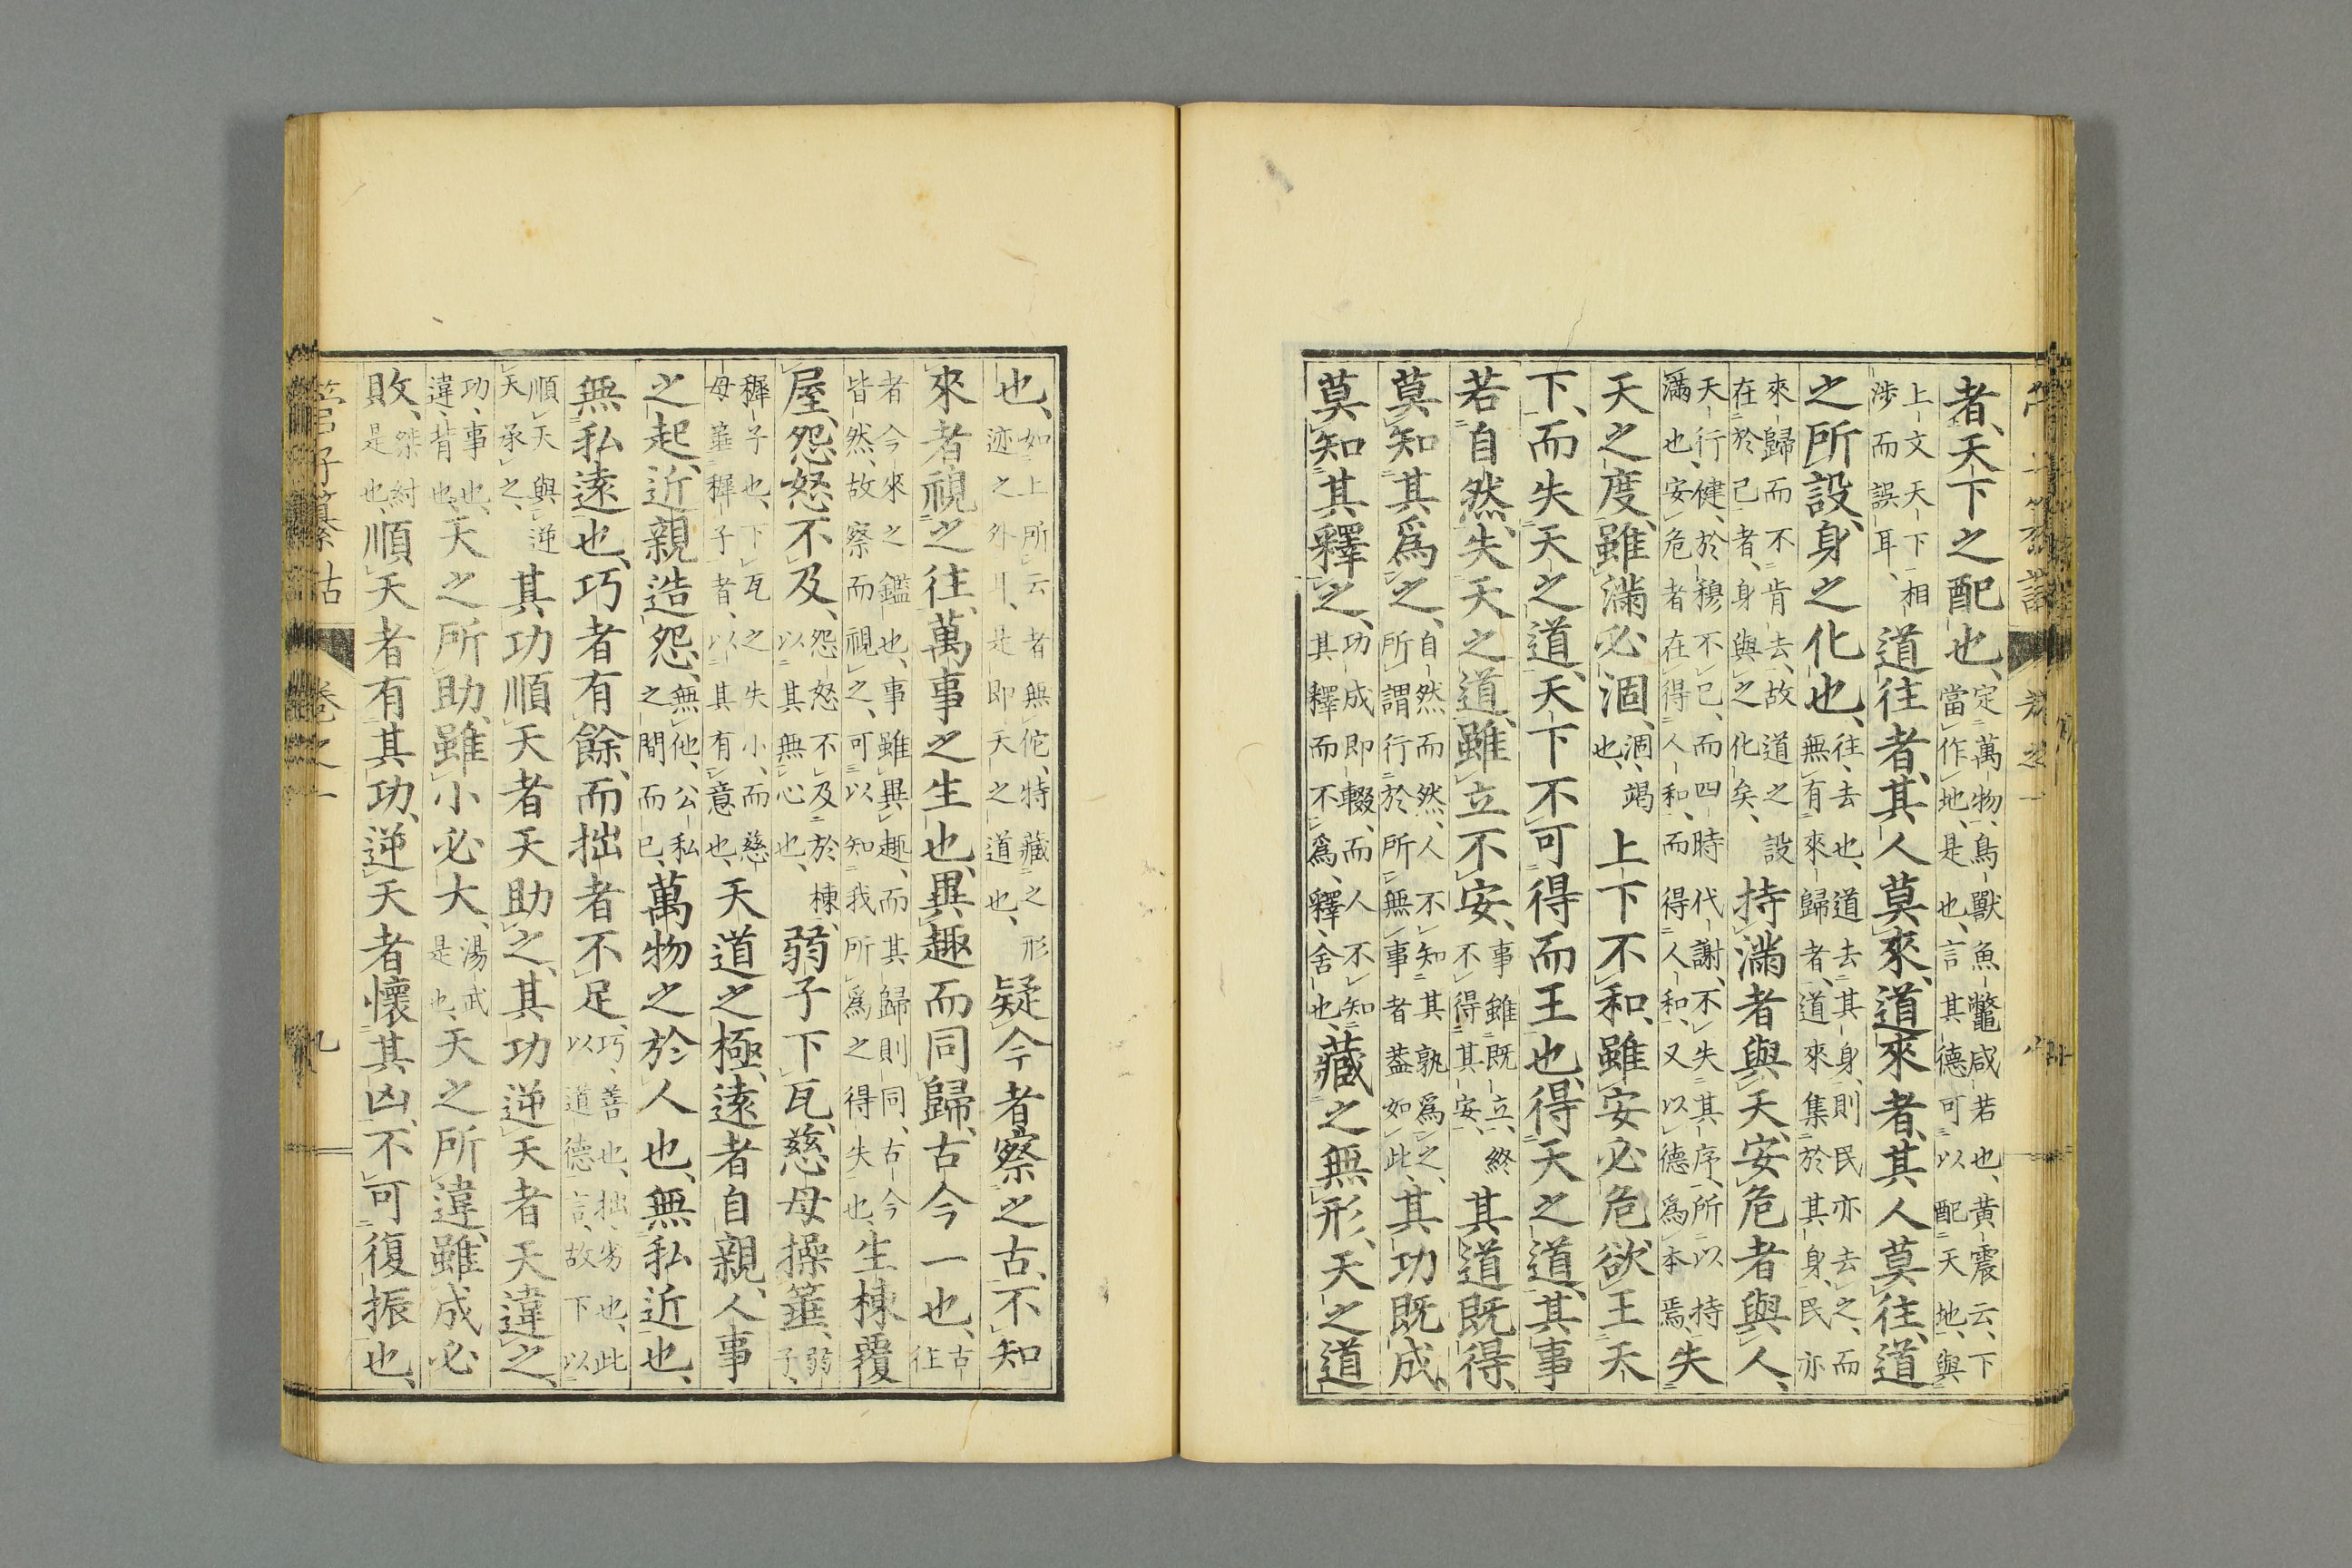 者、天下之配也、定萬物、鳥獸魚鼈咸若也、黃震云、下當作地、是也、言其德可以配天地、與
上文天下相涉而誤耳、道往者、其人莫來、道來者、其人莫往、道
之所設、身之化也、往、去也、道去其身、則民亦去之、而無有來歸者、道來集於其身、民亦
來歸而不肯去、故道之設在於己者、身與之化矣、持滿者與天、安危者與人、
天行健、於穆不已、而四時代謝、不失其序、所以持滿也、安危者在得人和、而得人和、又以德爲本焉、失
天之度、雖滿必涸、涸、竭也、上下不和、雖安必危、欲王天
下、而失天之道、天下不可得而王也、得天之道、其事
若自然、失天之道、雖立不安、事雖既立、終不得其安、其道既得、
莫知其爲之、自然而然、人不知其孰爲之、所謂行於所無事者蓋如此、其功既成、
莫知其釋之、功成即輟、而人不知其釋而不爲、釋、舍也、藏之無形、天之道
也、如上所云者無佗、特藏之形迹之外耳、是即天之道也、疑今者察之古、不知
來者視之往、萬事之生也、異趣而同歸、古今一也、古往
者今來之鑑也、事雖異趣、而其歸則同、古今皆然、故察而視之、可以知我所爲之得失也、生棟覆
屋、怨怒不及、怨怒不及於棟、以其無心也、弱子下瓦、慈母操箠、弱子、
穉子也、下瓦之失小、而慈母箠穉子者、以其有意也、天道之極、遠者自親、人事
之起、近親造怨、無他、公私之間而已、萬物之於人也、無私近也、
無私遠也、巧者有餘、而拙者不足、巧、善也、拙、劣也、此以道德言、故下以
順天與逆天承之、其功順天者天助之、其功逆天者天違之、
功、事也、違、背也、天之所助、雖小必大、湯武是也、天之所違、雖成必
敗、桀紂是也、順天者有其功、逆天者懷其凶、不可復振也、
管子纂詁 卷之一 九